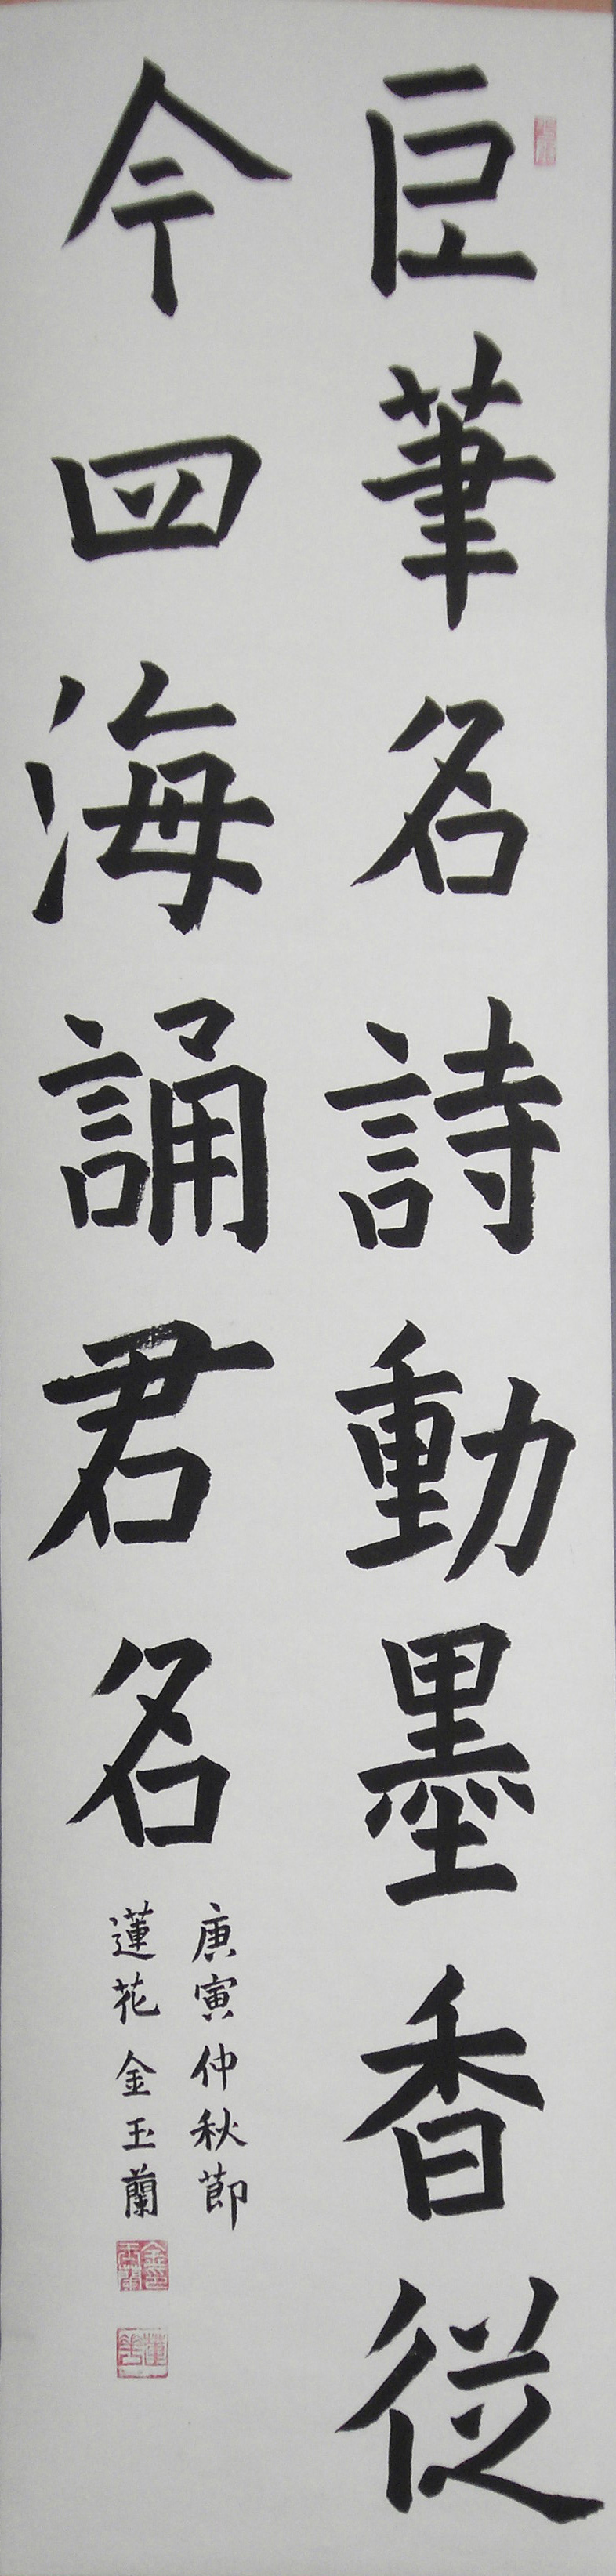 巨筆名詩動墨香從
今四海誦君名
庚寅仲秋節
蓮花金玉蘭